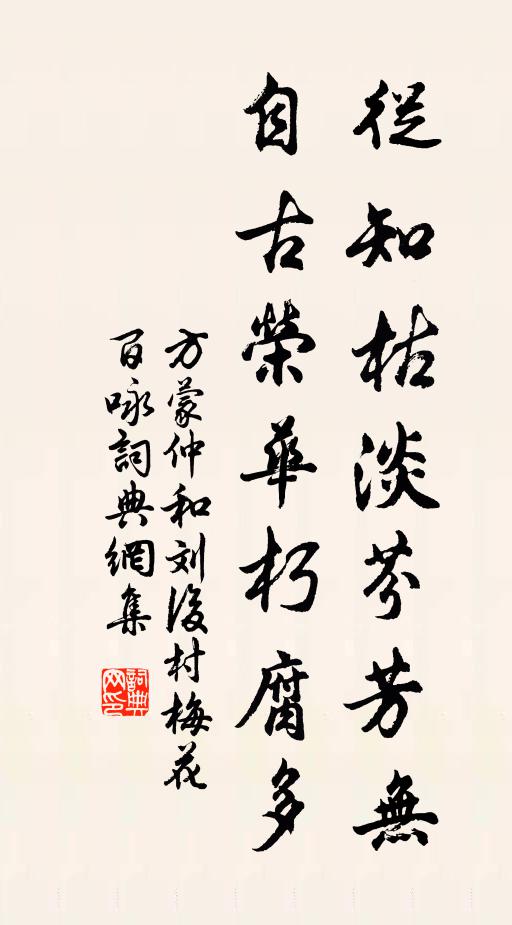 從知枯淡芬芳無
自古榮華朽腐多
方蒙仲和刘後村梅花
百咏詞典網集
詞典
网印